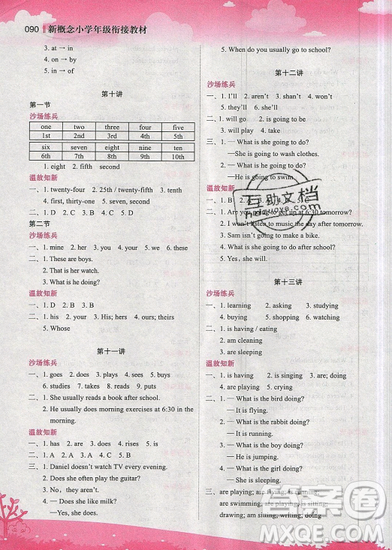 090 新概念小学年级衔接教材
3. at → in
4. on → by
5. in → of
第十讲
第一节
沙场练兵
one two three four five
1st 2nd 3rd 4th 5th
six seven eight nine ten
6th 7th 8th 9th 10th
1. eight 2. fifth 3. second
温故知新
一、1. twenty-four 2. 25th / twenty-fifth
4. first, thirty-one 5. seven, seventh
二、1. D 2. C 3. C 4. B 5. A
第二节
沙场练兵
一、1. mine 2. her 3. you 4. your 5. we 6. these
二、1. These are boys.
2. That is her watch.
3. What is he doing?
温故知新
一、1. D 2. B 3. B
二、1. me 2. hers; her 3. our 4. themselves
5. Whose
第十一讲
沙场练兵
一、1. goes 2. does 3. plays 4. sees 5. buys
6. studies 7. takes 8. has
二、1. She usually reads a book after school.
2. He usually does morning exercises at 6:30 in the morning.
温故知新
一、1. A 2. A 3. C 4. B 5. B
二、1. Daniel doesn't watch TV every evening.
2. Does she often play the guitar?
3. No, they aren't.
4. — Does she like milk?
— Yes, she does.
5. When do you usually go to school?
第十二讲
沙场练兵
一、1. I'll 2. aren't 3. shan't 4. isn't 5. don't
6. won't
二、1. will go 2. is going to be
三、1. — What is she going to do?
— She is going to wash clothes.
2. — What is he going to do?
— He is going to swim.
温故知新
2. I wasn't listen to music the day after tomorrow.
3. Sam isn't going to make a bike.
4. What are you going to do after school?
二、1. C 2. A 3. B 4. A 5. A
第十三讲
沙场练兵
1. learning 2. asking 3. studying
4. buying 5. shopping 6. watching
温故知新
一、1. is having / eating
2. am cleaning
二、1. is having 2. is singing 3. are; doing
4. are playing 5. is running
三、1. — What is the bird doing?
— It is flying.
2. — What is the rabbit doing?
— It is running.
3. — What is the boy doing?
— He is jumping.
4. — What is the girl doing?
— She is sleeping.